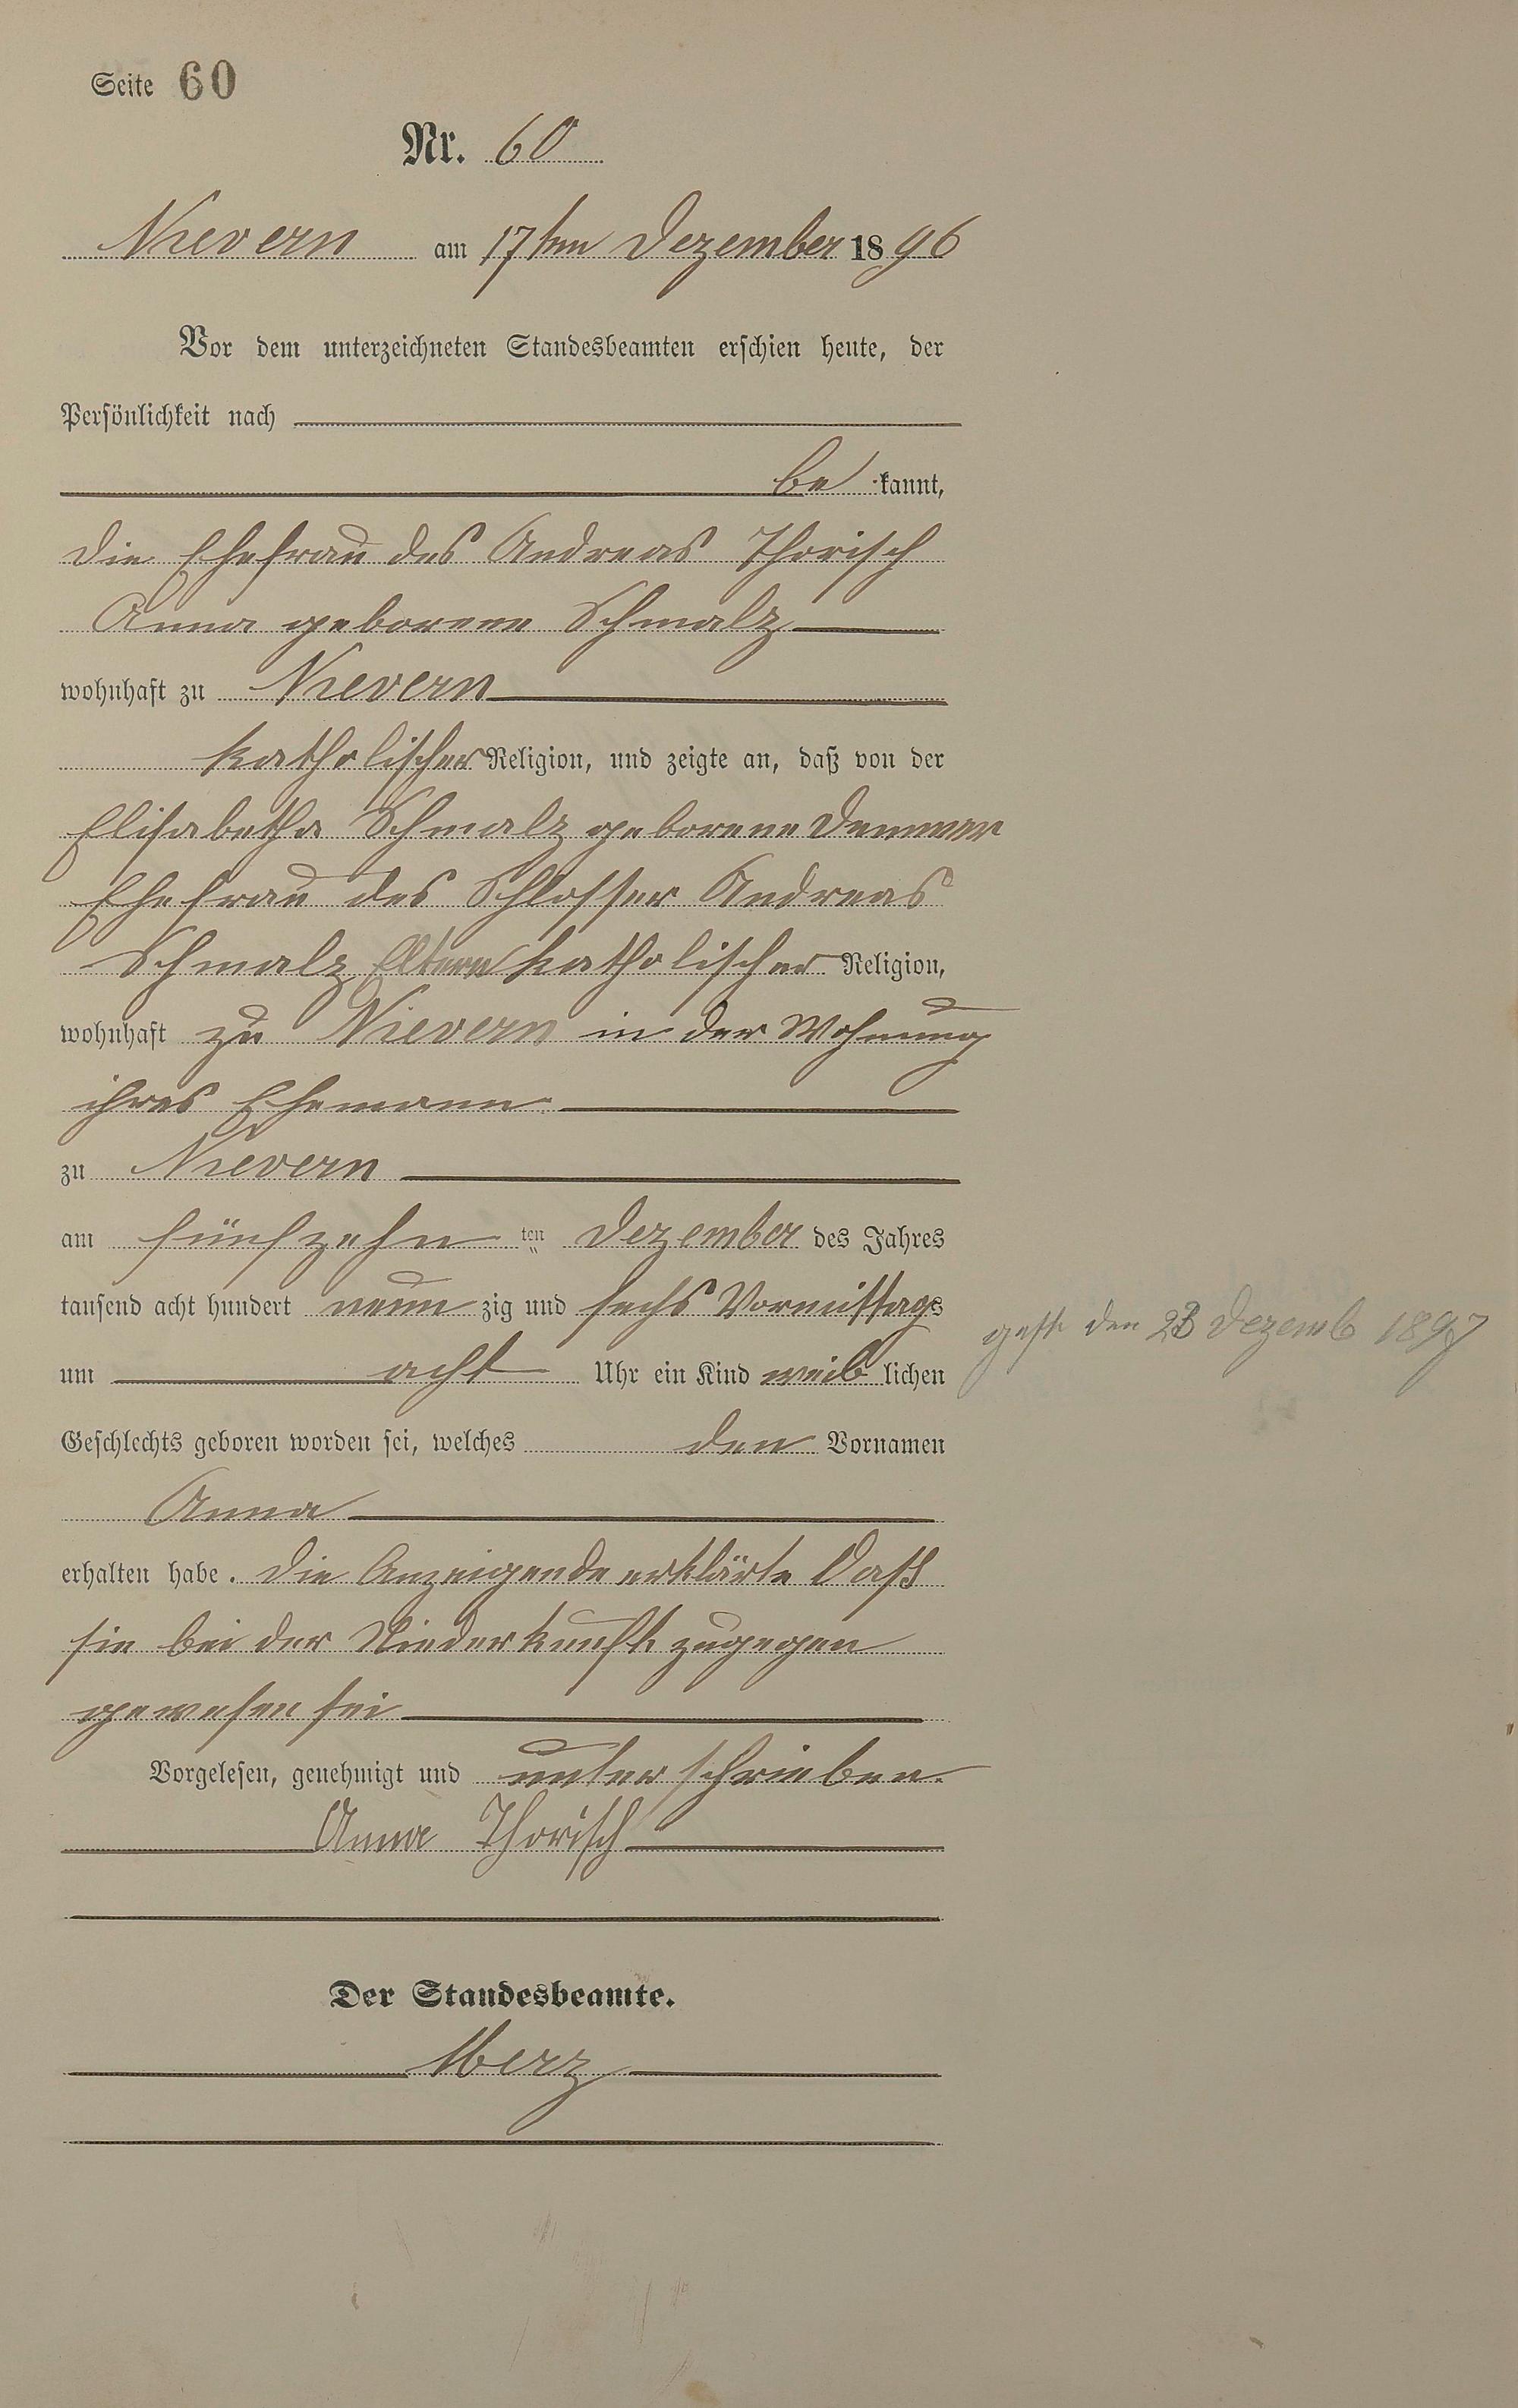 Seite 60
Nr. 60
Nievern am 17ten Dezember 1896
Vor dem unterzeichneten Standesbeamten erschien heute, der
Persönlichkeit nach
be kannt,
die Ehefrau des Andreas Thorisch
Anna geborene Schmalz
wohnhaft zu Nievern
katholischer Religion, und zeigte an, daß von der
Elisabetha Schmalz geborene
Ehefrau des Schlosser Andreas
Schmalz Eltern katholischer Religion,
wohnhaft zu Nievern in der Wohnung
ihres Ehemann
zu Nievern
am fünfzehn ten Dezember des Jahres
tausend acht hundert neun zig und sechs Vormittags
um acht Uhr ein Kind weib lichen
Geschlechts geboren worden sei, welches den Vornamen
Anna
erhalten habe. Die Anzeigende erklärte daß
sie bei der Niederkunft zugegen
gewesen sei
Vorgelesen, genehmigt und unterschrieben.
Anna Thorisch
Der Standesbeamte.
Merz
gest. den 23 Dezemb 1897